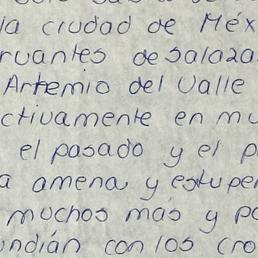 la ciudad de Méx
rvantes de Salaza
Artemio del Valle
ctivamente en mu
el pasado y el p
a amena y estupe
muchos más y po
undián con los cro